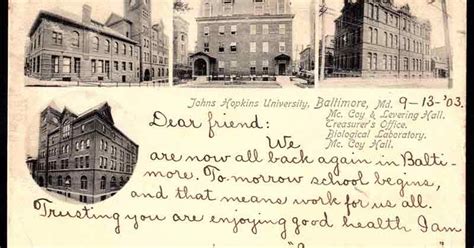 Johns Hopkins University, Baltimore, Md. 9-13-'03.
Mc. Coy & Levering Hall.
Treasurer's Office.
Biological Laboratory.
Mc. Coy Hall.
Dear friend:
We
are now all back again in Balti-
more. To morrow school begins,
and that means work for us all.
Trusting you are enjoying good health I am